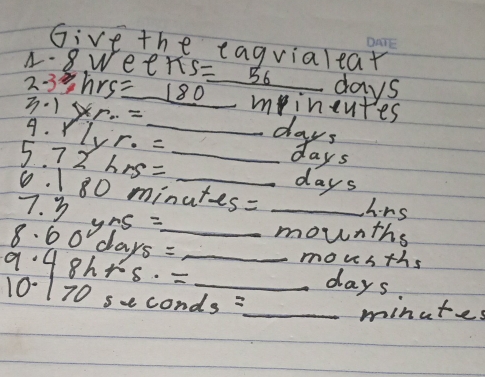 Give the eaqvialeat
DATE
1-8 weeks= 56 days
2-3 hrs= 180 mineutes
3.1 yr. = ____ days
4. 1 lyr. = ____ days
5.72 hrs= ____ days
6.180 minutes= ____ hrs
7.3 yrs = ____ mownths
8.60 days = ____ mounths
9.48hrs. = ____ days.
10.170 seconds = ____ minutes